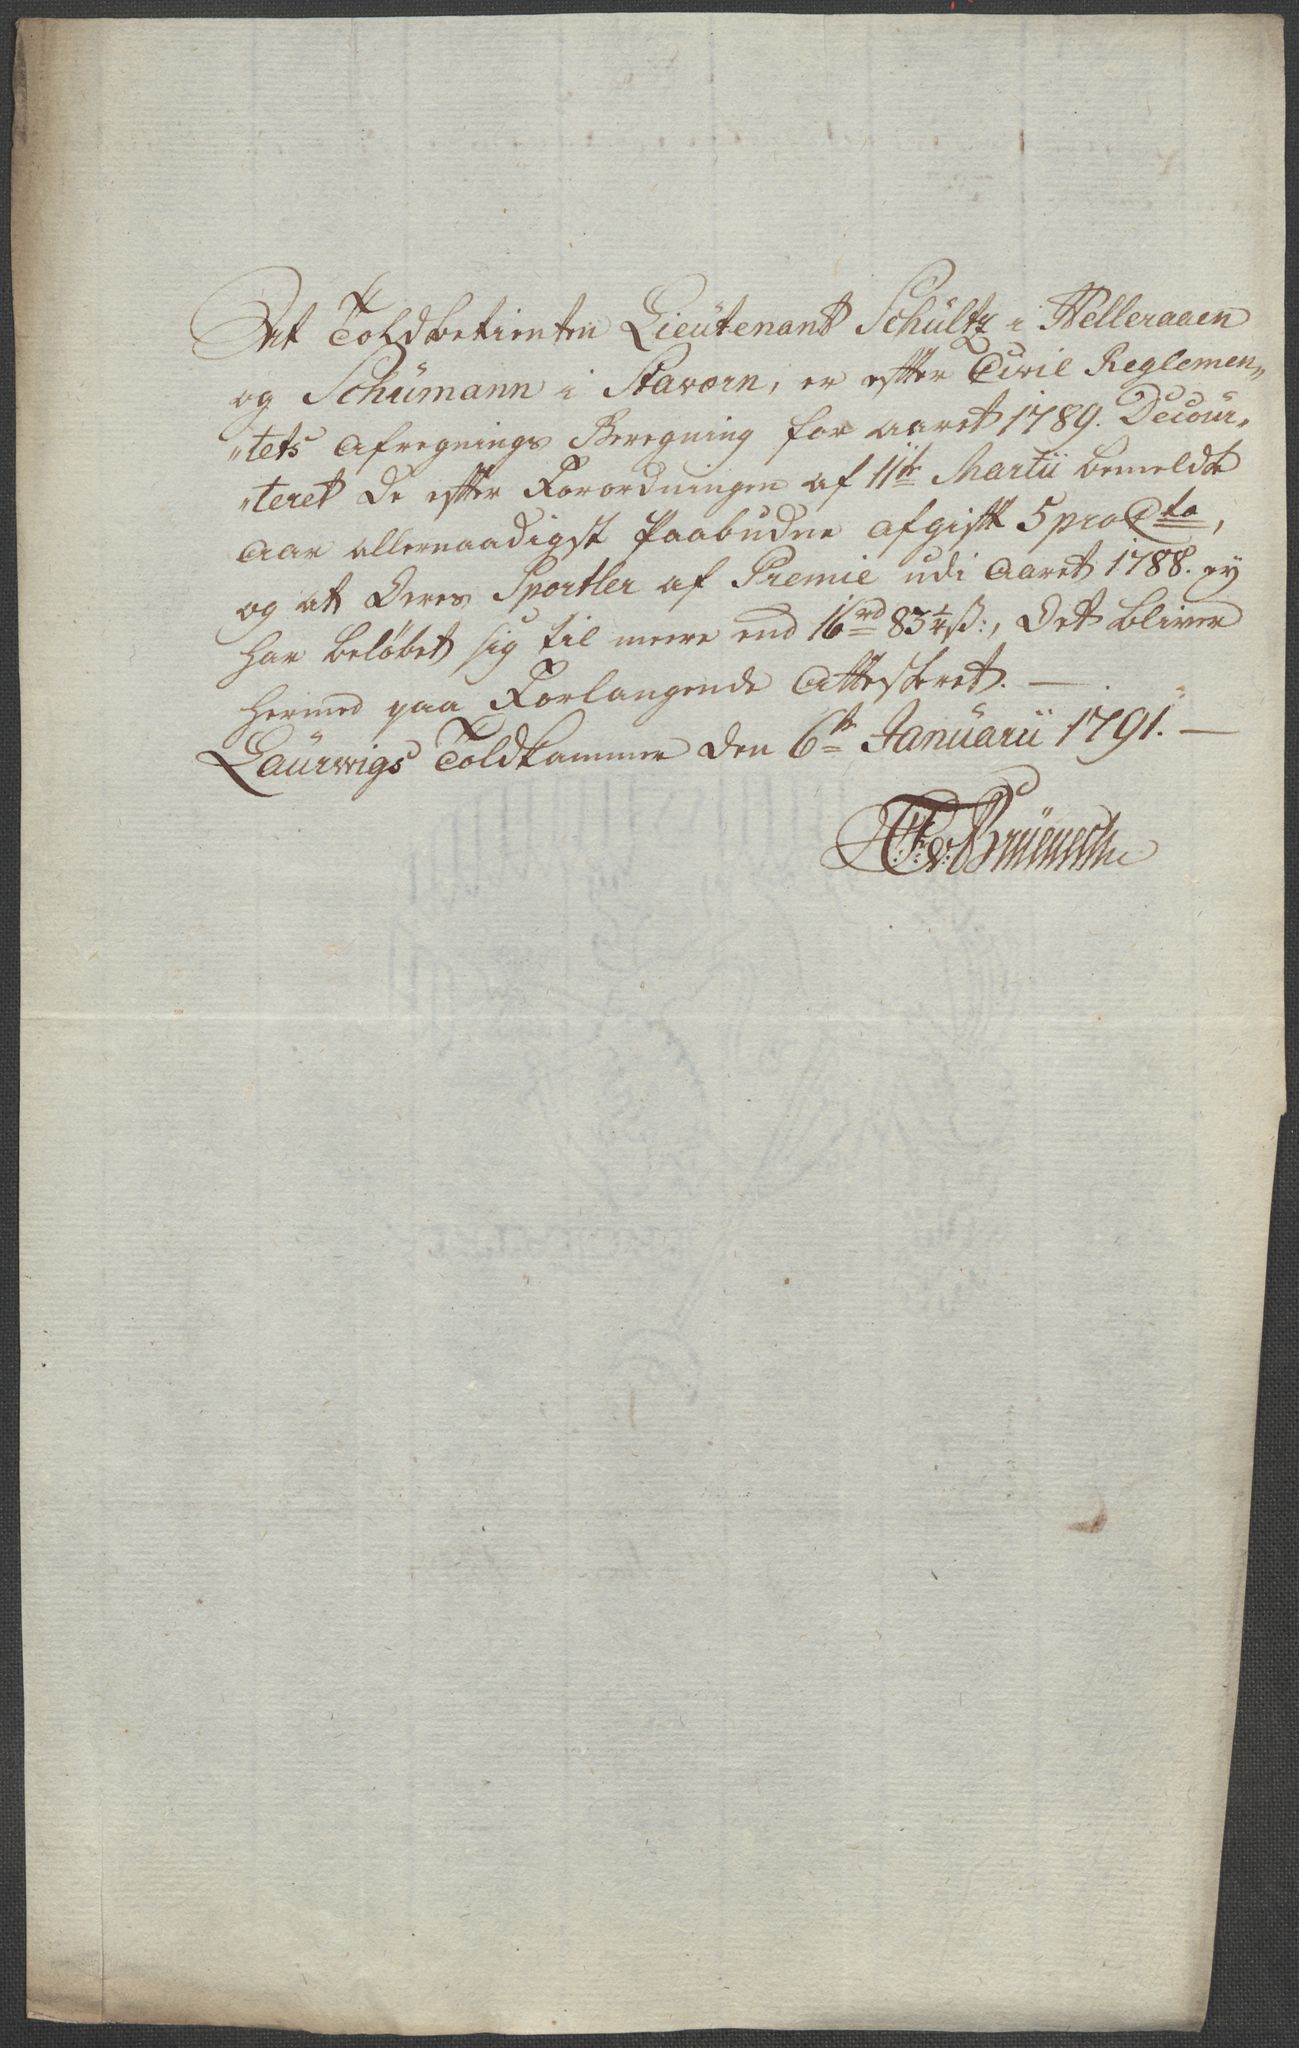 At Toldbetienten Lieutenant Schültz i Helleraaen
og Schümann i Stavœrn, er efter Civil Reglemen„
„tets Afregnings Beregning for Aaret 1789. Decour„
„teret De efter Forordningen af 11te Martii bemeldte
Aar allernaadigst Paabudne Afgift 5 pro Cto,
og at Deres Sportler af Premie udi Aaret 1788. ey
har beløbet sig til meere end 16rd 83 1/4 ß:, Det bliver
hermed paa Forlangende Attesteret. —
Laurwigs Toldkammer den 6te Januarii 1791. —